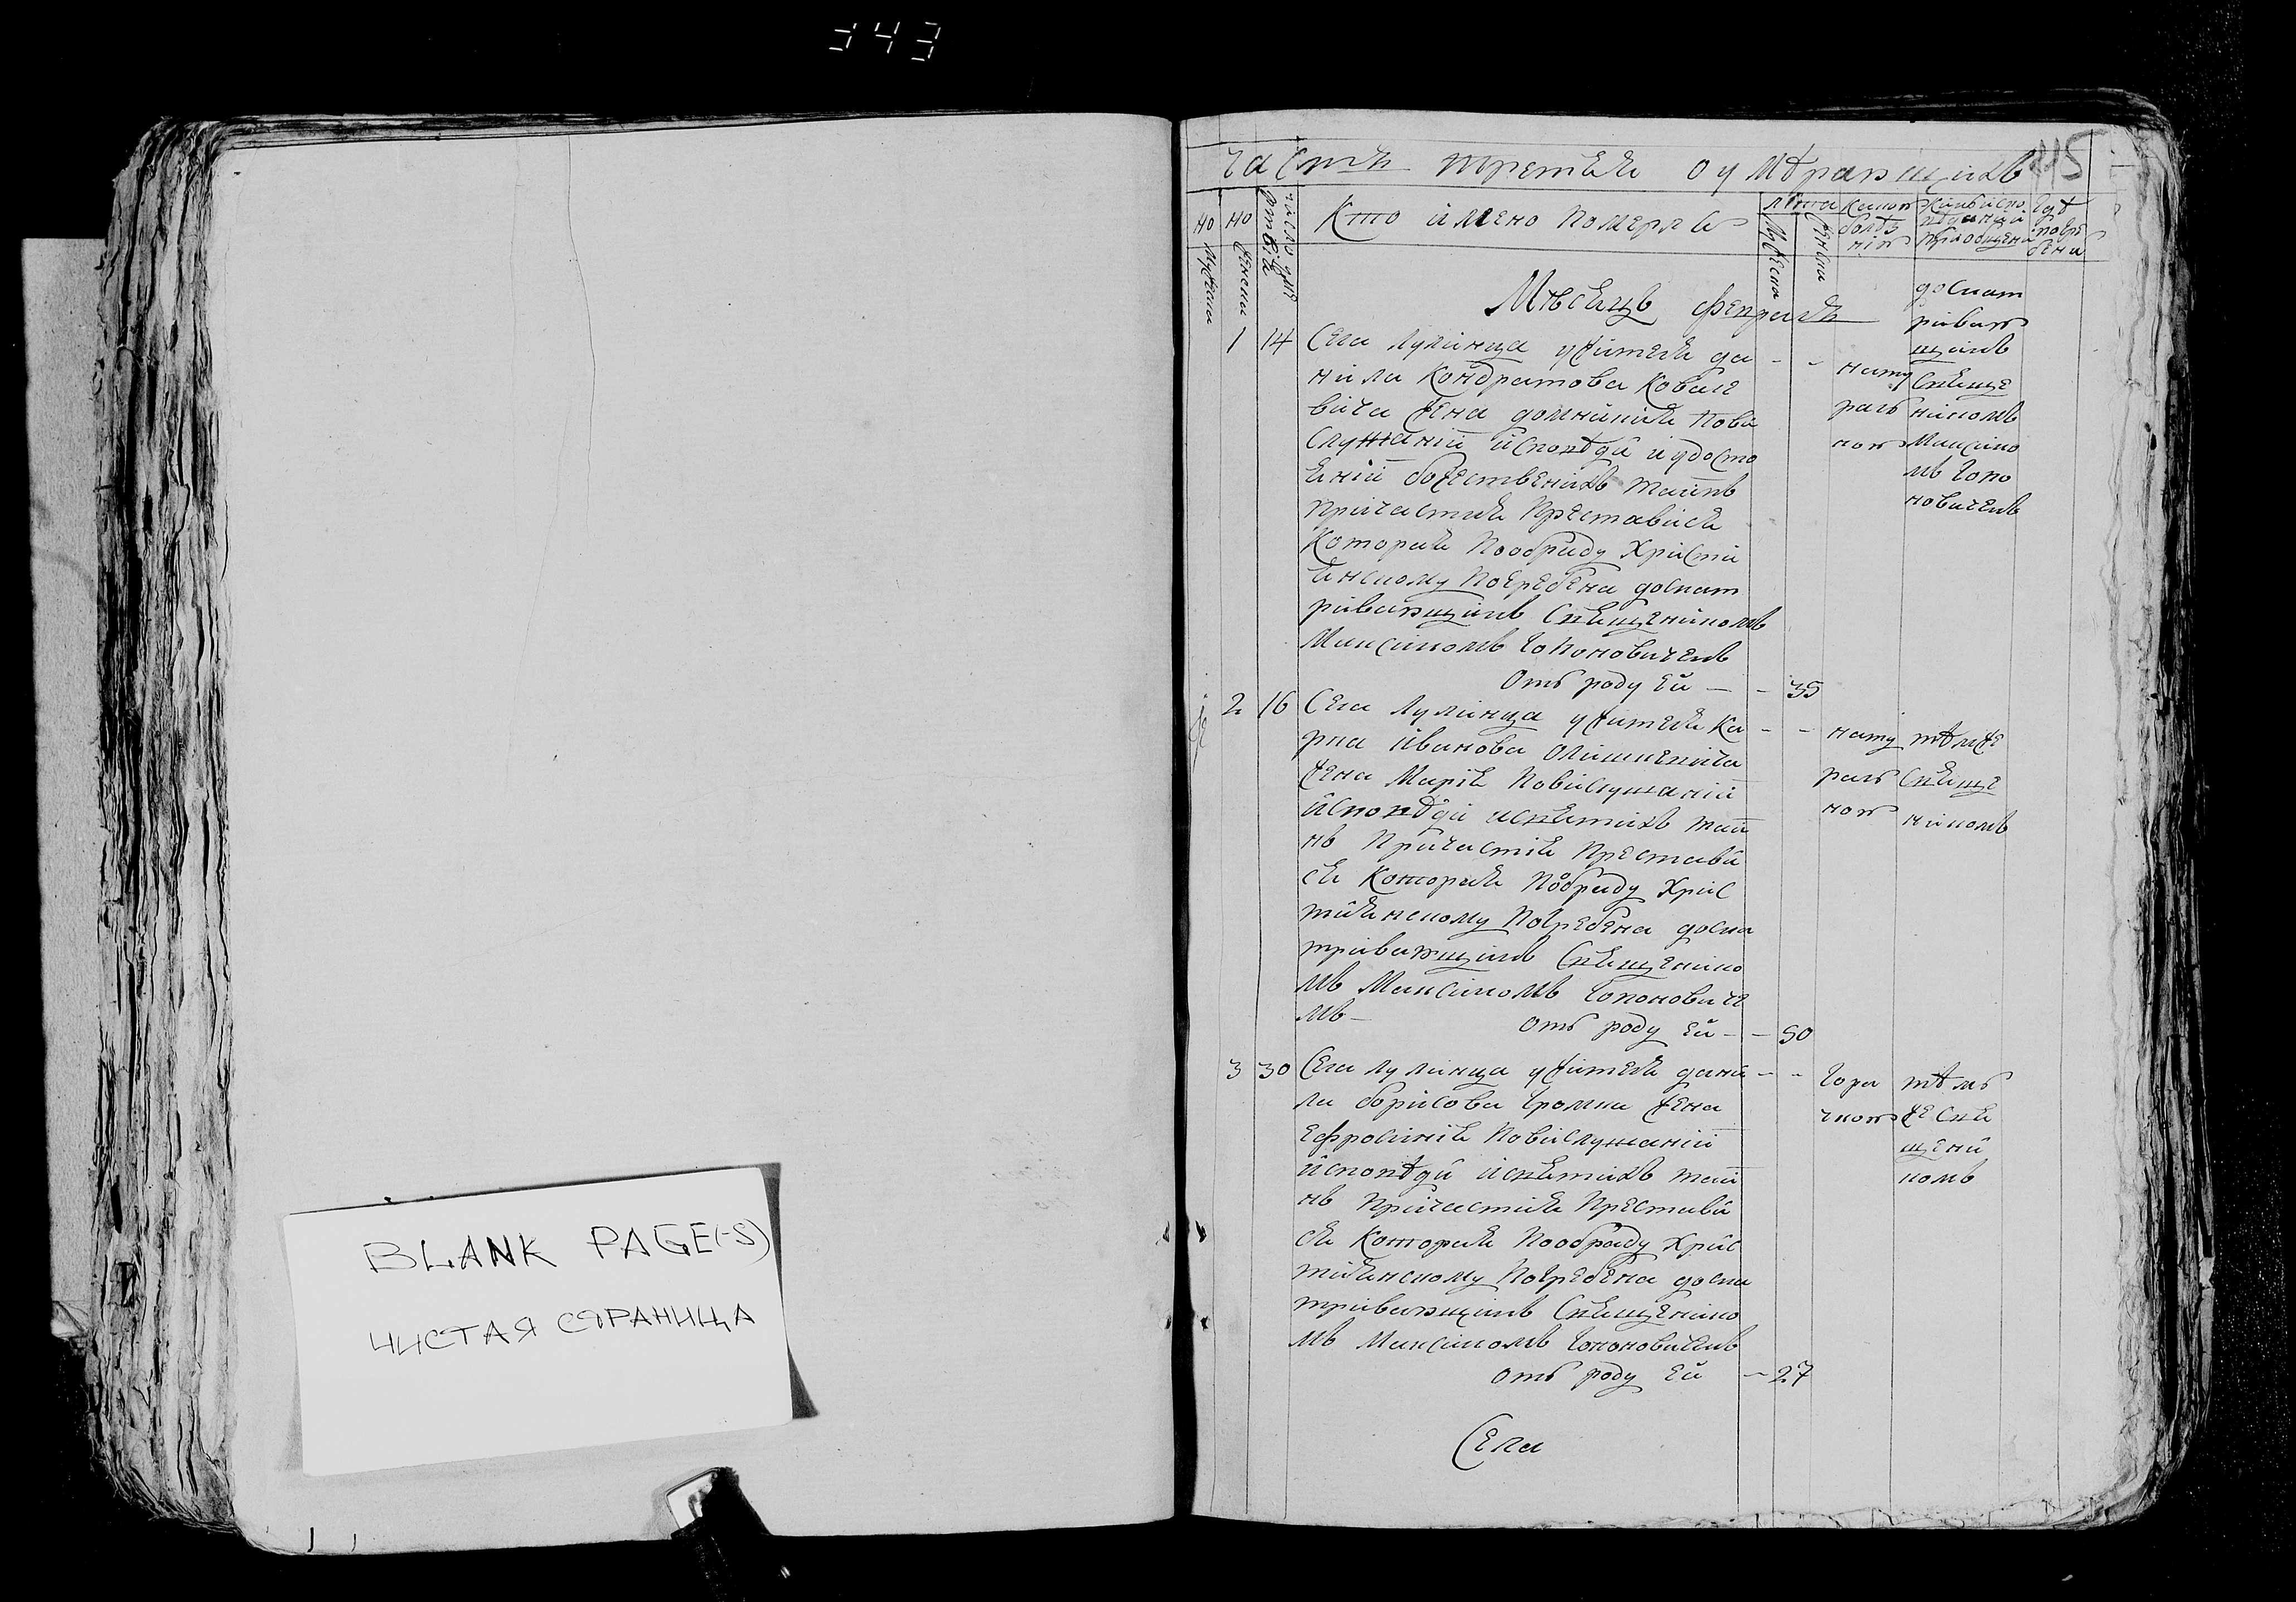 343
BLANK PAGE(-S)
ЧИСТАЯ СТРАНИЦА
часть третья о умѣрающихъ
115
но мужеска
но женска
число дня
Кто имено померлъ
лѣта
мужеска
женска
какою болѣзнію
кимъ исповѣданъ и приобщенъ
гдѣ погребены
Мѣсецъ февраль
1 14 Села Лулинца ужителя да
нила Кондратова Ковале
вича жена домникия по ви
слушаніи исповѣди и удосто
еніи божественихъ таинъ
причастия преставися
Которая по обряду христи
янскому погребена досмат
ривающимъ священикомъ
Максимомъ Гопоновичемъ
отъ роду ей — — 35
нату
ралъ
ною
досмат
ривою
щимъ
Свяще
никомъ
Максимо
мъ Гопо
новичемъ
2 16 Села Лулинца ужителя Ка
рпа Иванова
жена Мария по вислушаніи
исповѣди и святихъ таи
нъ причастия престави
ся Которая по обряду Хрис
тиянскому погребена досма
тривающимъ Священико
мъ Максимомъ Гопонович
мъ — отъ роду ей — — 50
нату
рал
ною
тѣмже
Свяще
никомъ
3 30 Села Лулинца ужителя дани
ла борисова Громка жена
Ефросиния по вислушаніи
исповѣди и святихъ таи
нъ причастия престави
ся Которая по обряду Хрис
тиянскому погребена досма
тривающимъ Священико
мъ Максимомъ Гопоновичемъ
отъ роду ей — 27
горя
чкою
тѣмъ
же Свя
щени
комъ
Села